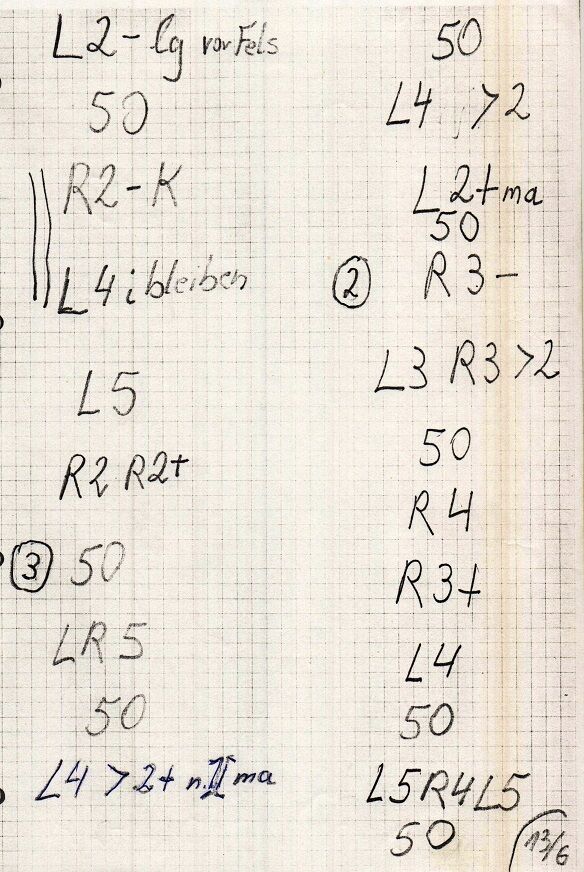 L2- lg vor Fels
50
R2-K
L4 i bleiben
L5
R2 R2+
③ 50
LR5
50
L4 >2+ n. II ma
50
L4 >2
L2+ma
50
② R3-
L3 R3 >2
50
R4
R3+
L4
50
L5R4L5
50
13/6